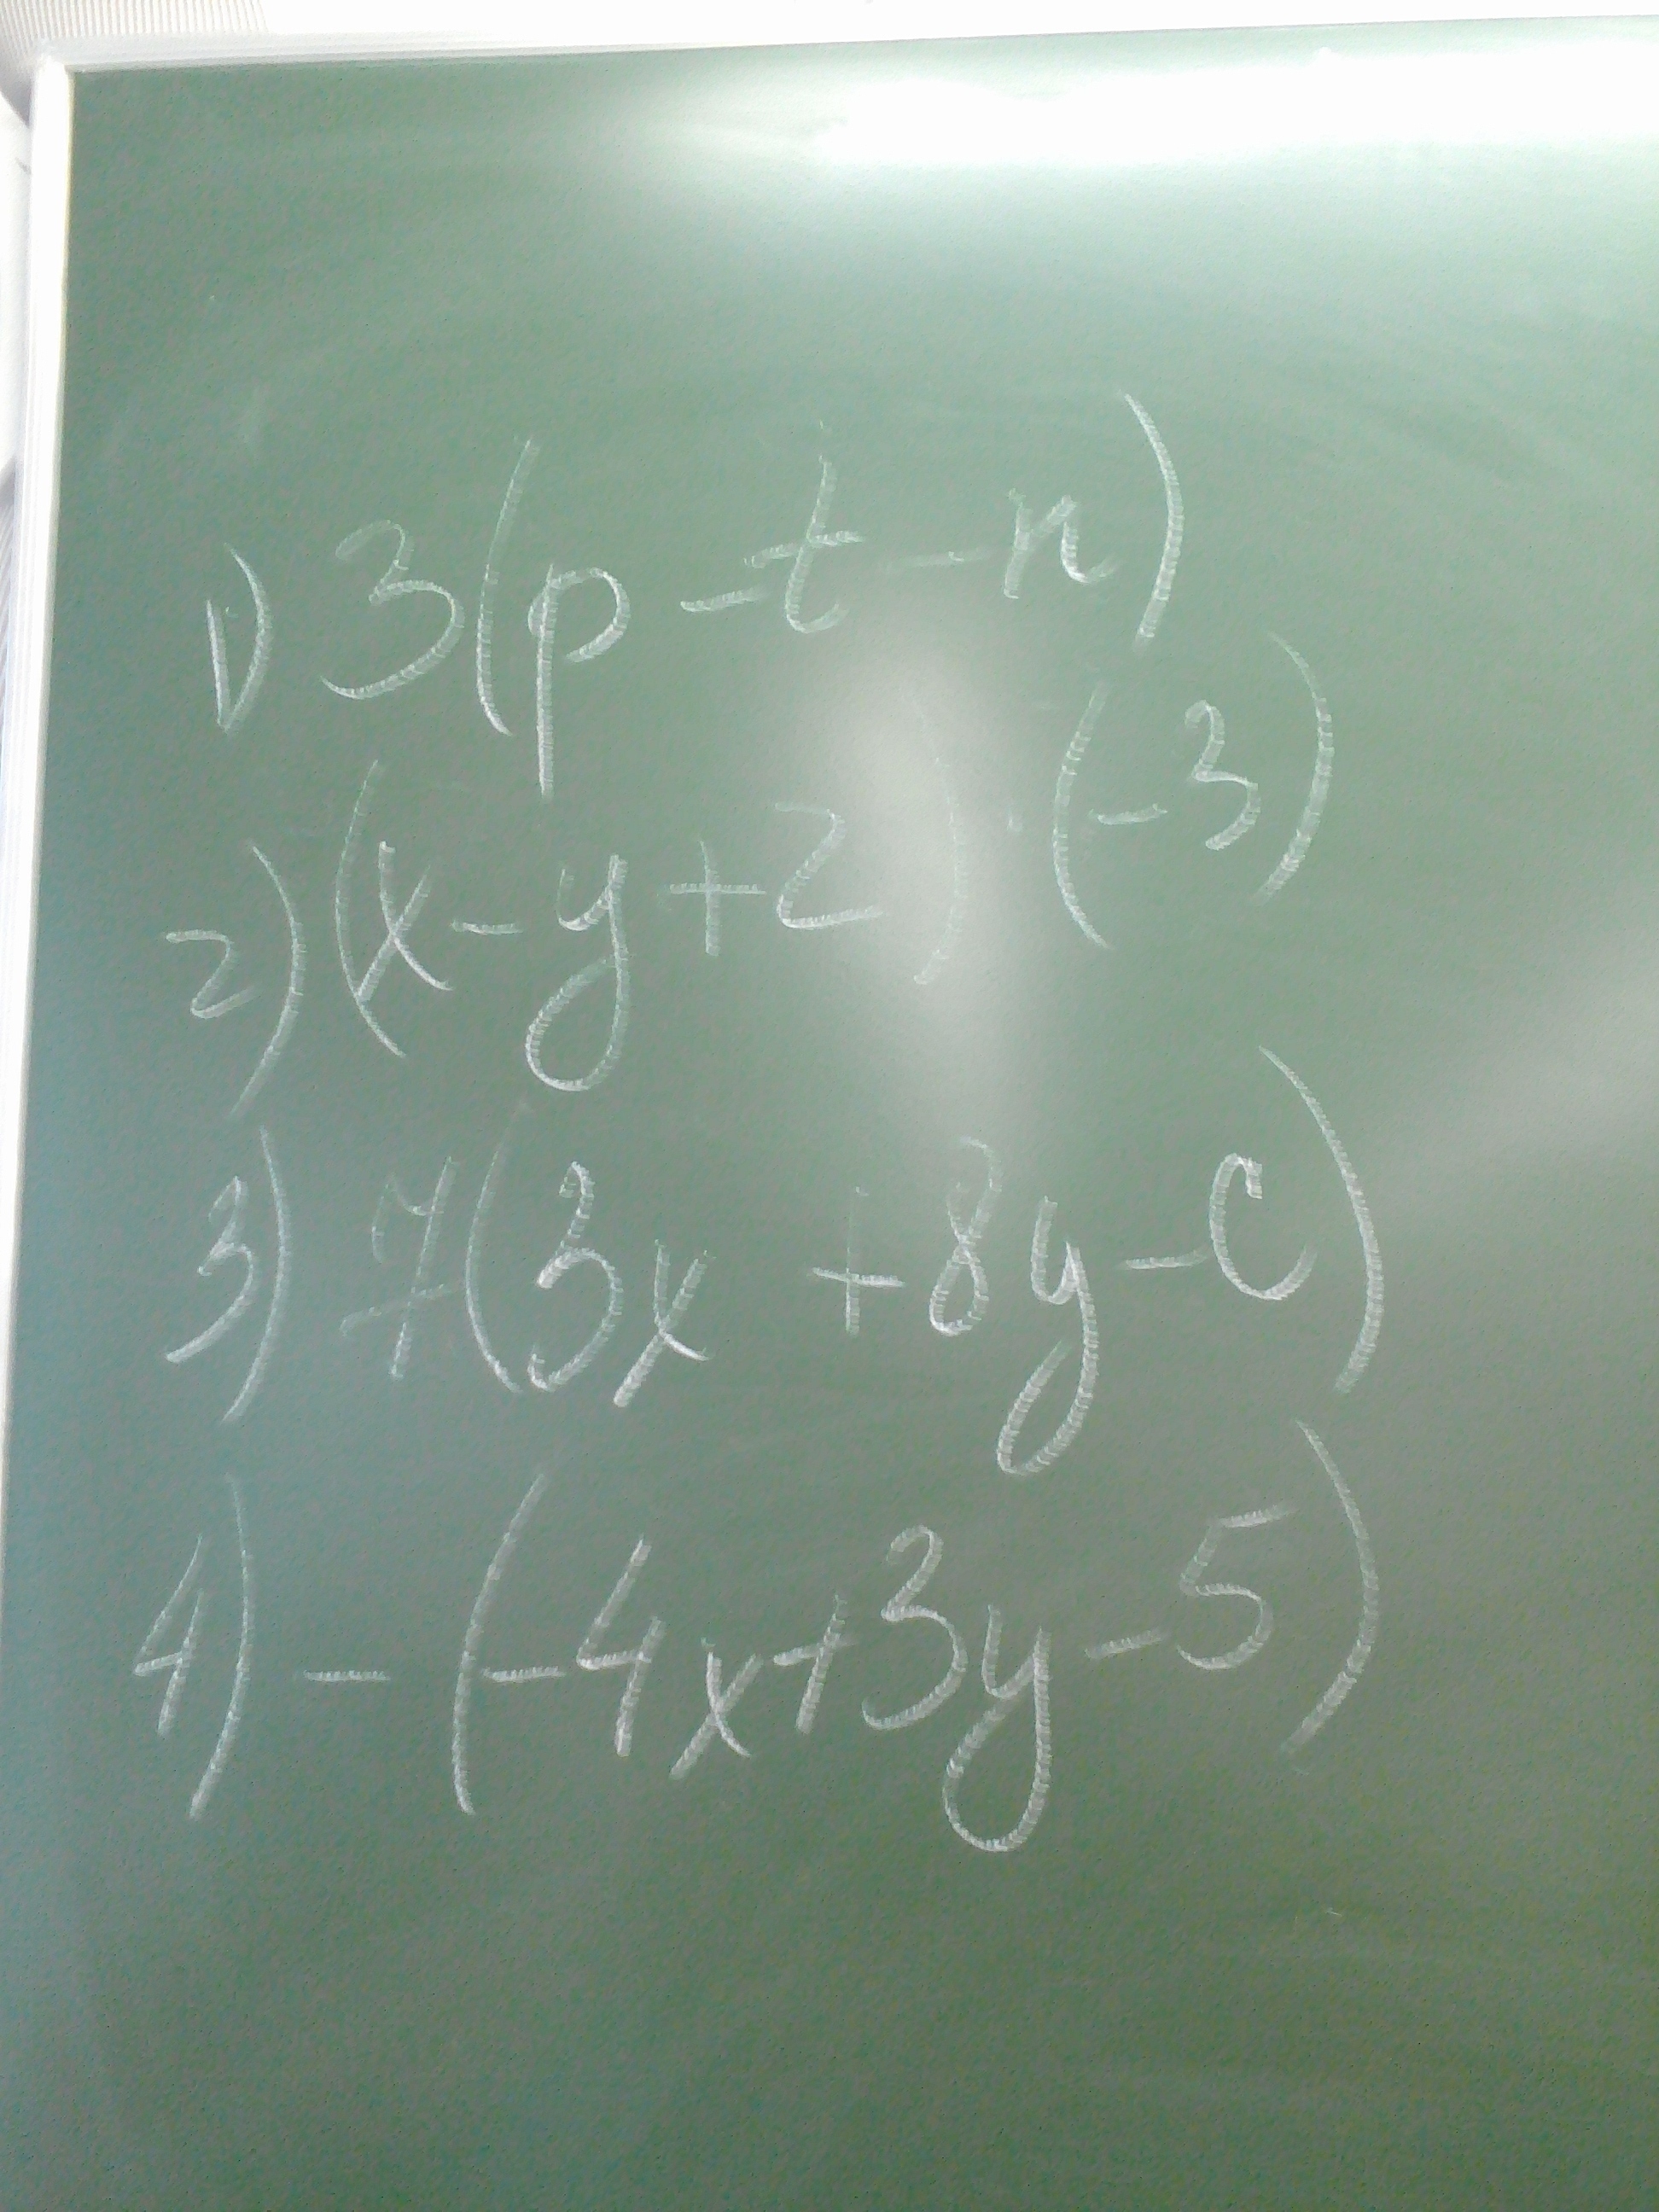 1) 3(p-t-n)
2) (x-y+z)·(-3)
3) 7(3x+8y-c)
4) -(-4x+3y-5)